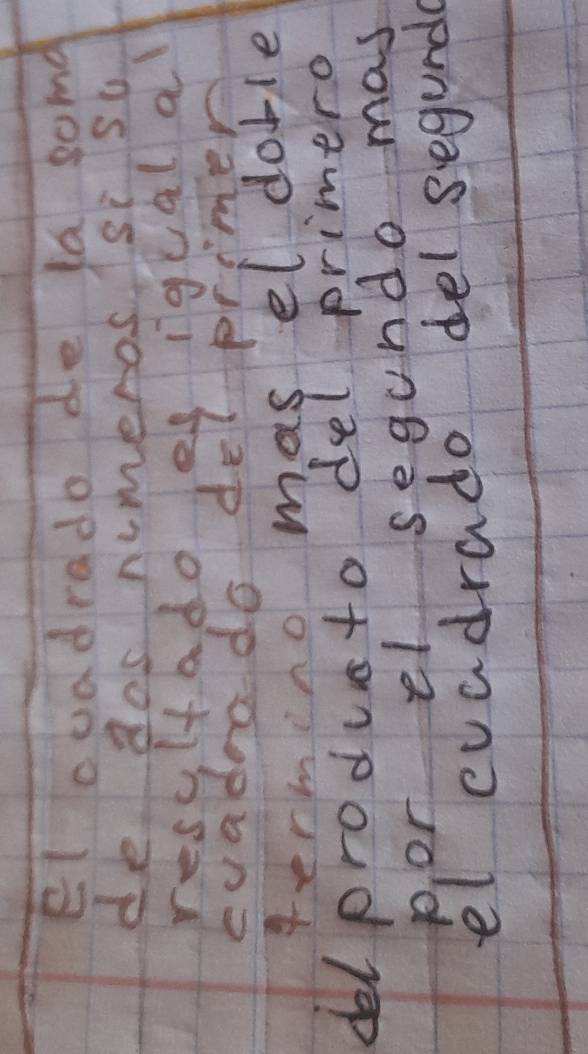 El cuadrado de la soma
de dos numeros si su
resultado es igual al
cuadrado del primer
termino mas el doble
del producto del primero
por el segundo mas
el cuadrado del segundo